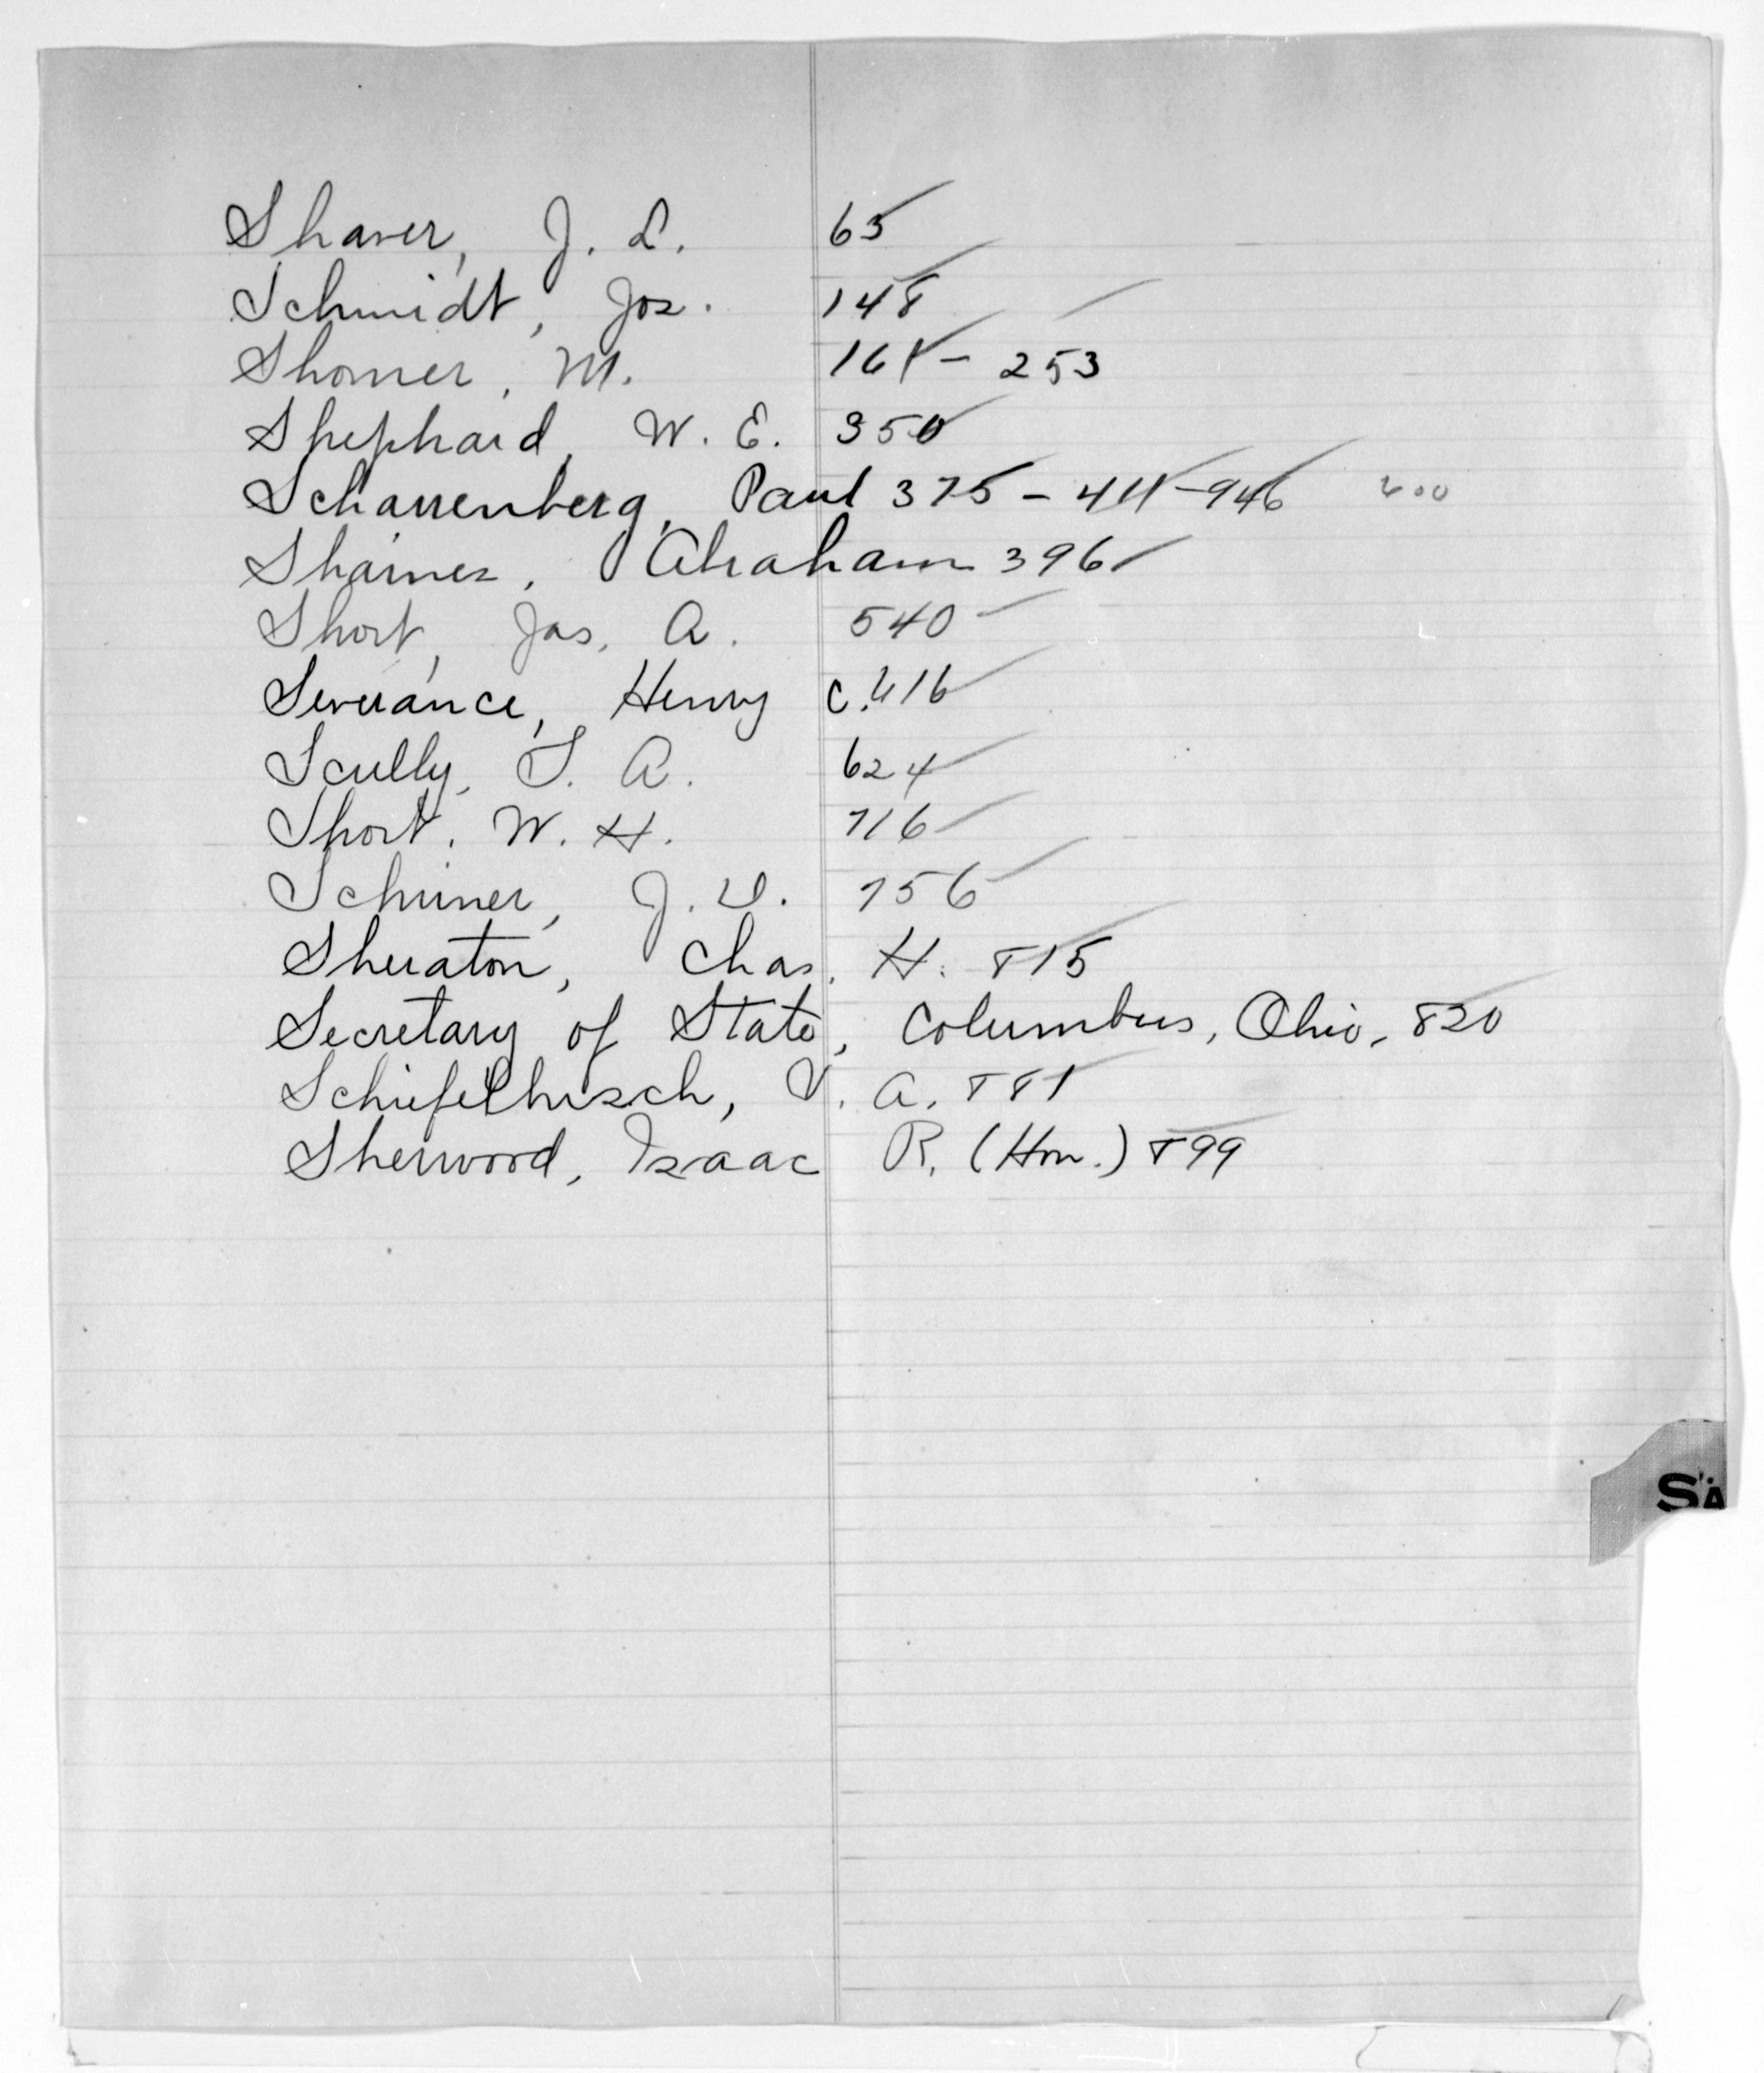 Shaver, J. L. 65
Schmidt, Jos. 148
Shomer, M. 161 - 253
Shephard, W. E. 350
Scharrenberg, Paul 375 - 411 - 946
Shaines, Abraham 396
Short, Jas. A. 540
Severance, Henry C. 616
Scully, T. A. 624
Short, W. H. 716
Schriner, J. V. 756
Sheraton, Chas. H. 815
Secretary of State, Columbus, Ohio, 820
V. A. 881
Sherwood, Isaac R. (Hon.) 899